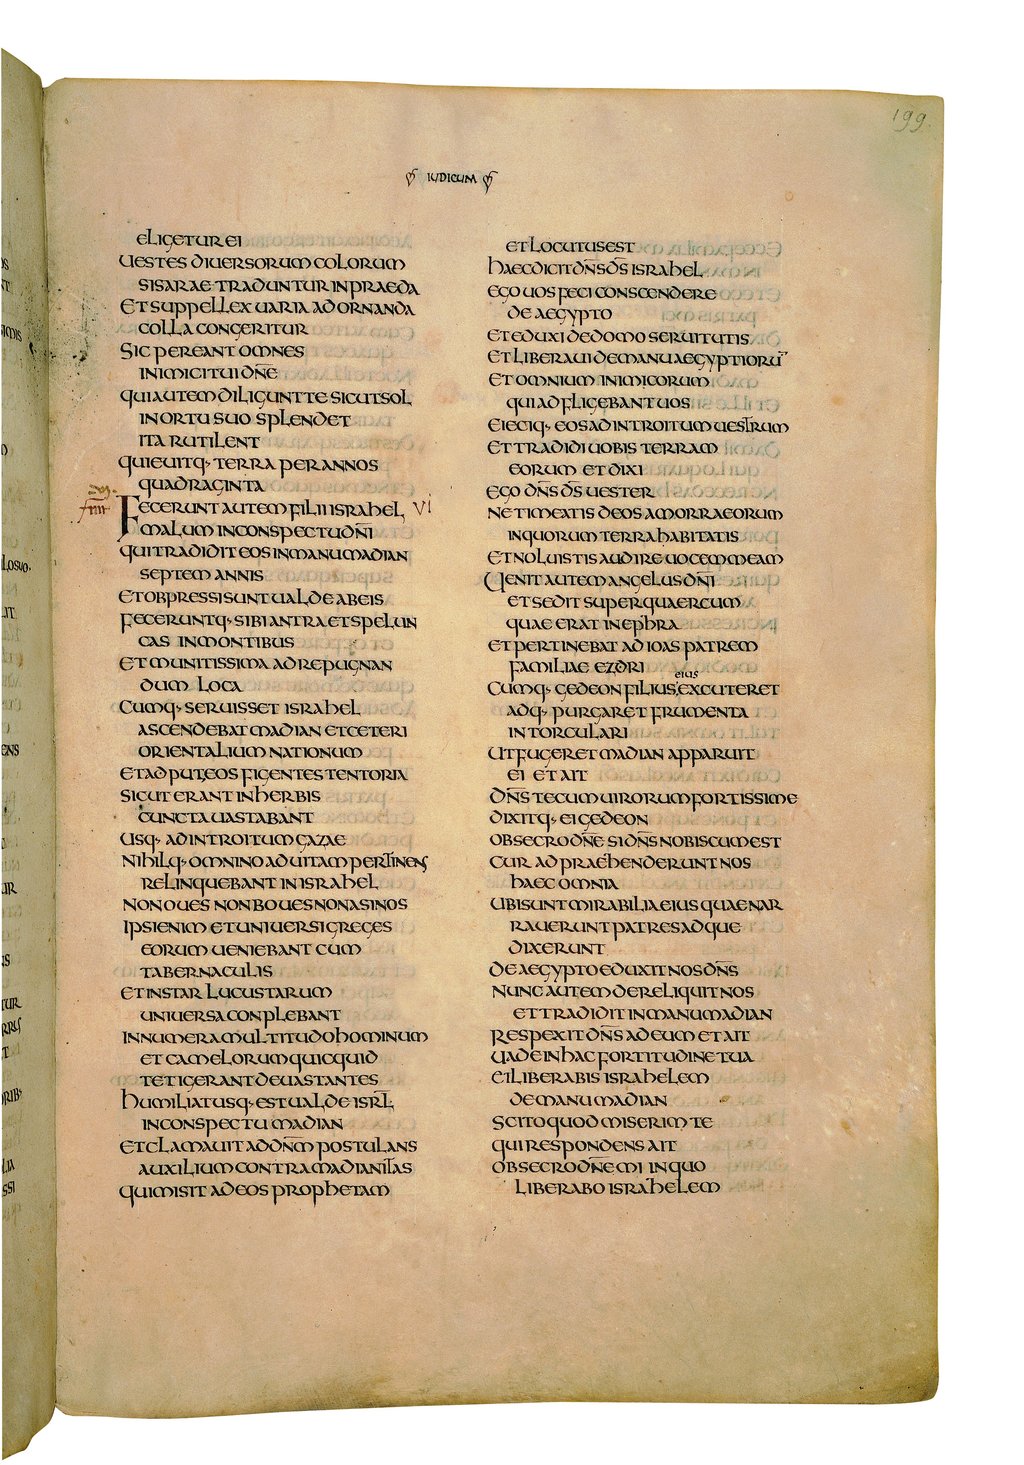 199
IUDICUM
eligetur ei
uestes diuersorum colorum
sisarae traduntur in praeda
et suppellex uaria ad ornanda
colla congeritur
sic pereant omnes
inimici tui dn̄e
qui autem diligunt te sicut sol
in ortu suo splendet
ita rutilent
quieuitq· terra per annos
quadraginta
Fecerunt autem filii israhel VI
malum in conspectu dn̄i
qui tradidit eos in manu madian
septem annis
et obpressi sunt ualde ab eis
feceruntq· sibi antra et spelun
cas in montibus
et munitissima ad repugnan
dum loca
cumq· seruisset israhel
ascendebat madian et ceteri
orientalium nationum
et ad puteos figentes tentoria
sicut erant in herbis
cuncta uastabant
usq· ad introitum gazae
nihilq· omnino ad uitam pertinens
relinquebant in israhel
non oues non boues non asinos
ipsi enim et uniuersi greges
eorum ueniebant cum
tabernaculis
et instar lucustarum
uniuersa conplebant
innumera multitudo hominum
et camelorum quicquid
tetigerant deuastantes
humiliatusq· est ualde isrl̄
in conspectu madian
et clamauit ad dn̄m postulans
auxilium contra madianitas
qui misit ad eos prophetam
et locutus est
haec dicit dn̄s d̄s israhel
ego uos feci conscendere
de aegypto
et eduxi de domo seruitutis
et liberaui de manu aegyptioru̅
et omnium inimicorum
qui adfligebant uos
eieciq· eos ad introitum uestrum
et tradidi uobis terram
eorum et dixi
ego dn̄s d̄s uester
ne timeatis deos amorraeorum
in quorum terra habitatis
et noluistis audire uocem meam
Uenit autem angelus dn̄i
et sedit super quaercum
quae erat in ephra
et pertinebat ad ioas patrem
familiae ezdri
eius
cumq· gedeon filius excuteret
adq· purgaret frumenta
in torculari
ut fugeret madian apparuit
ei et ait
dn̄s tecum uirorum fortissime
dixitq· ei gedeon
obsecro dn̄e si dn̄s nobiscum est
cur adpraehenderunt nos
haec omnia
ubi sunt mirabilia eius quae nar
rauerunt patres adque
dixerunt
de aegypto eduxit nos dn̄s
nunc autem dereliquit nos
et tradidit in manu madian
respexit dn̄s ad eum et ait
uade in hac fortitudine tua
et liberabis israhelem
de manu madian
scito quod miserim te
qui respondens ait
obsecro dn̄e mi in quo
liberabo israhelem